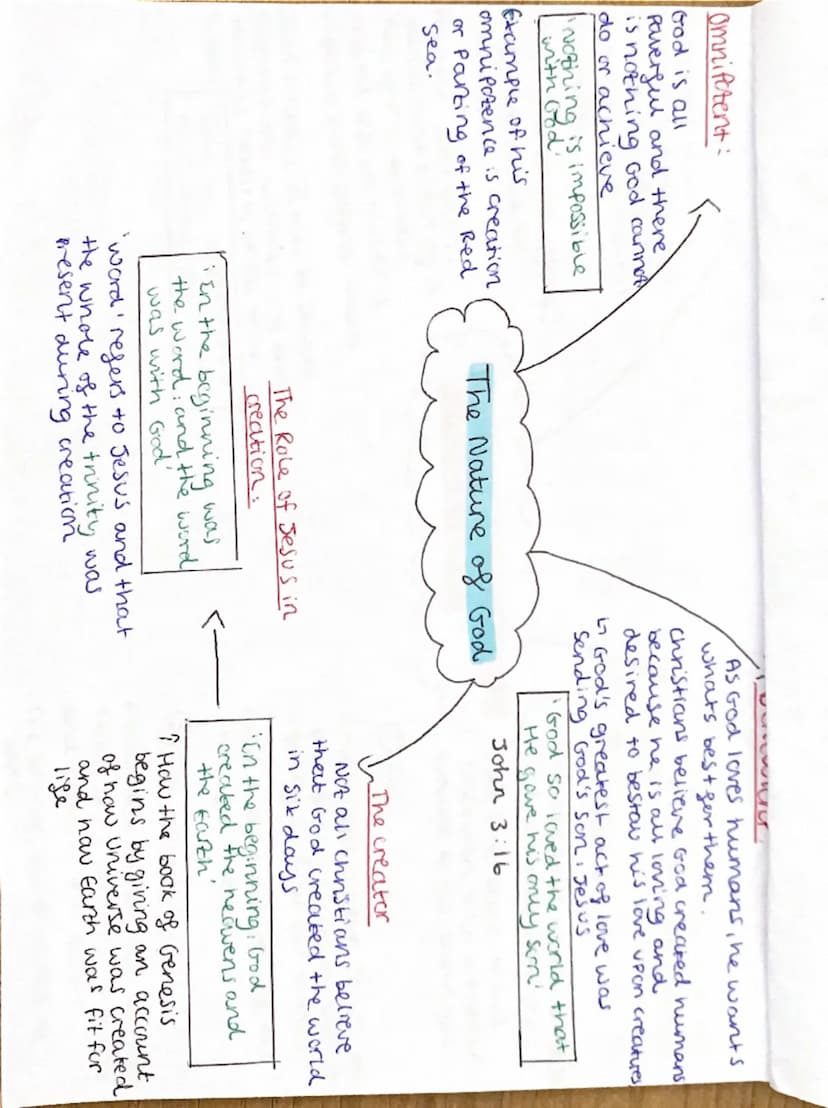 The Nature of God
Omnipotent:
God is all
Powerful and there
is nothing God cannot
do or achieve
'Nothing is impossible
with God'
Example of his
omnipotence is creation
or Parting of the Red
Sea.
As God loves humans, he wants
whats best for them.
Christians believe God created humans
because he is all loving and
desired to bestow his love upon creatures
↳ God's greatest act of love was
sending God's son, Jesus
'God so loved the world that
He gave his only son'
John 3:16
The creator
Not all christians believe
that God created the world
in six days
'In the beginning, God
created the heavens and
the Earth'
↑ How the book of Genesis
begins by giving an account
of how universe was created
and how Earth was fit for
life
The Role of Jesus in
creation:
'In the beginning was
the word, and the word
was with God'
'word' refers to Jesus and that
the whole of the trinity was
present during creation